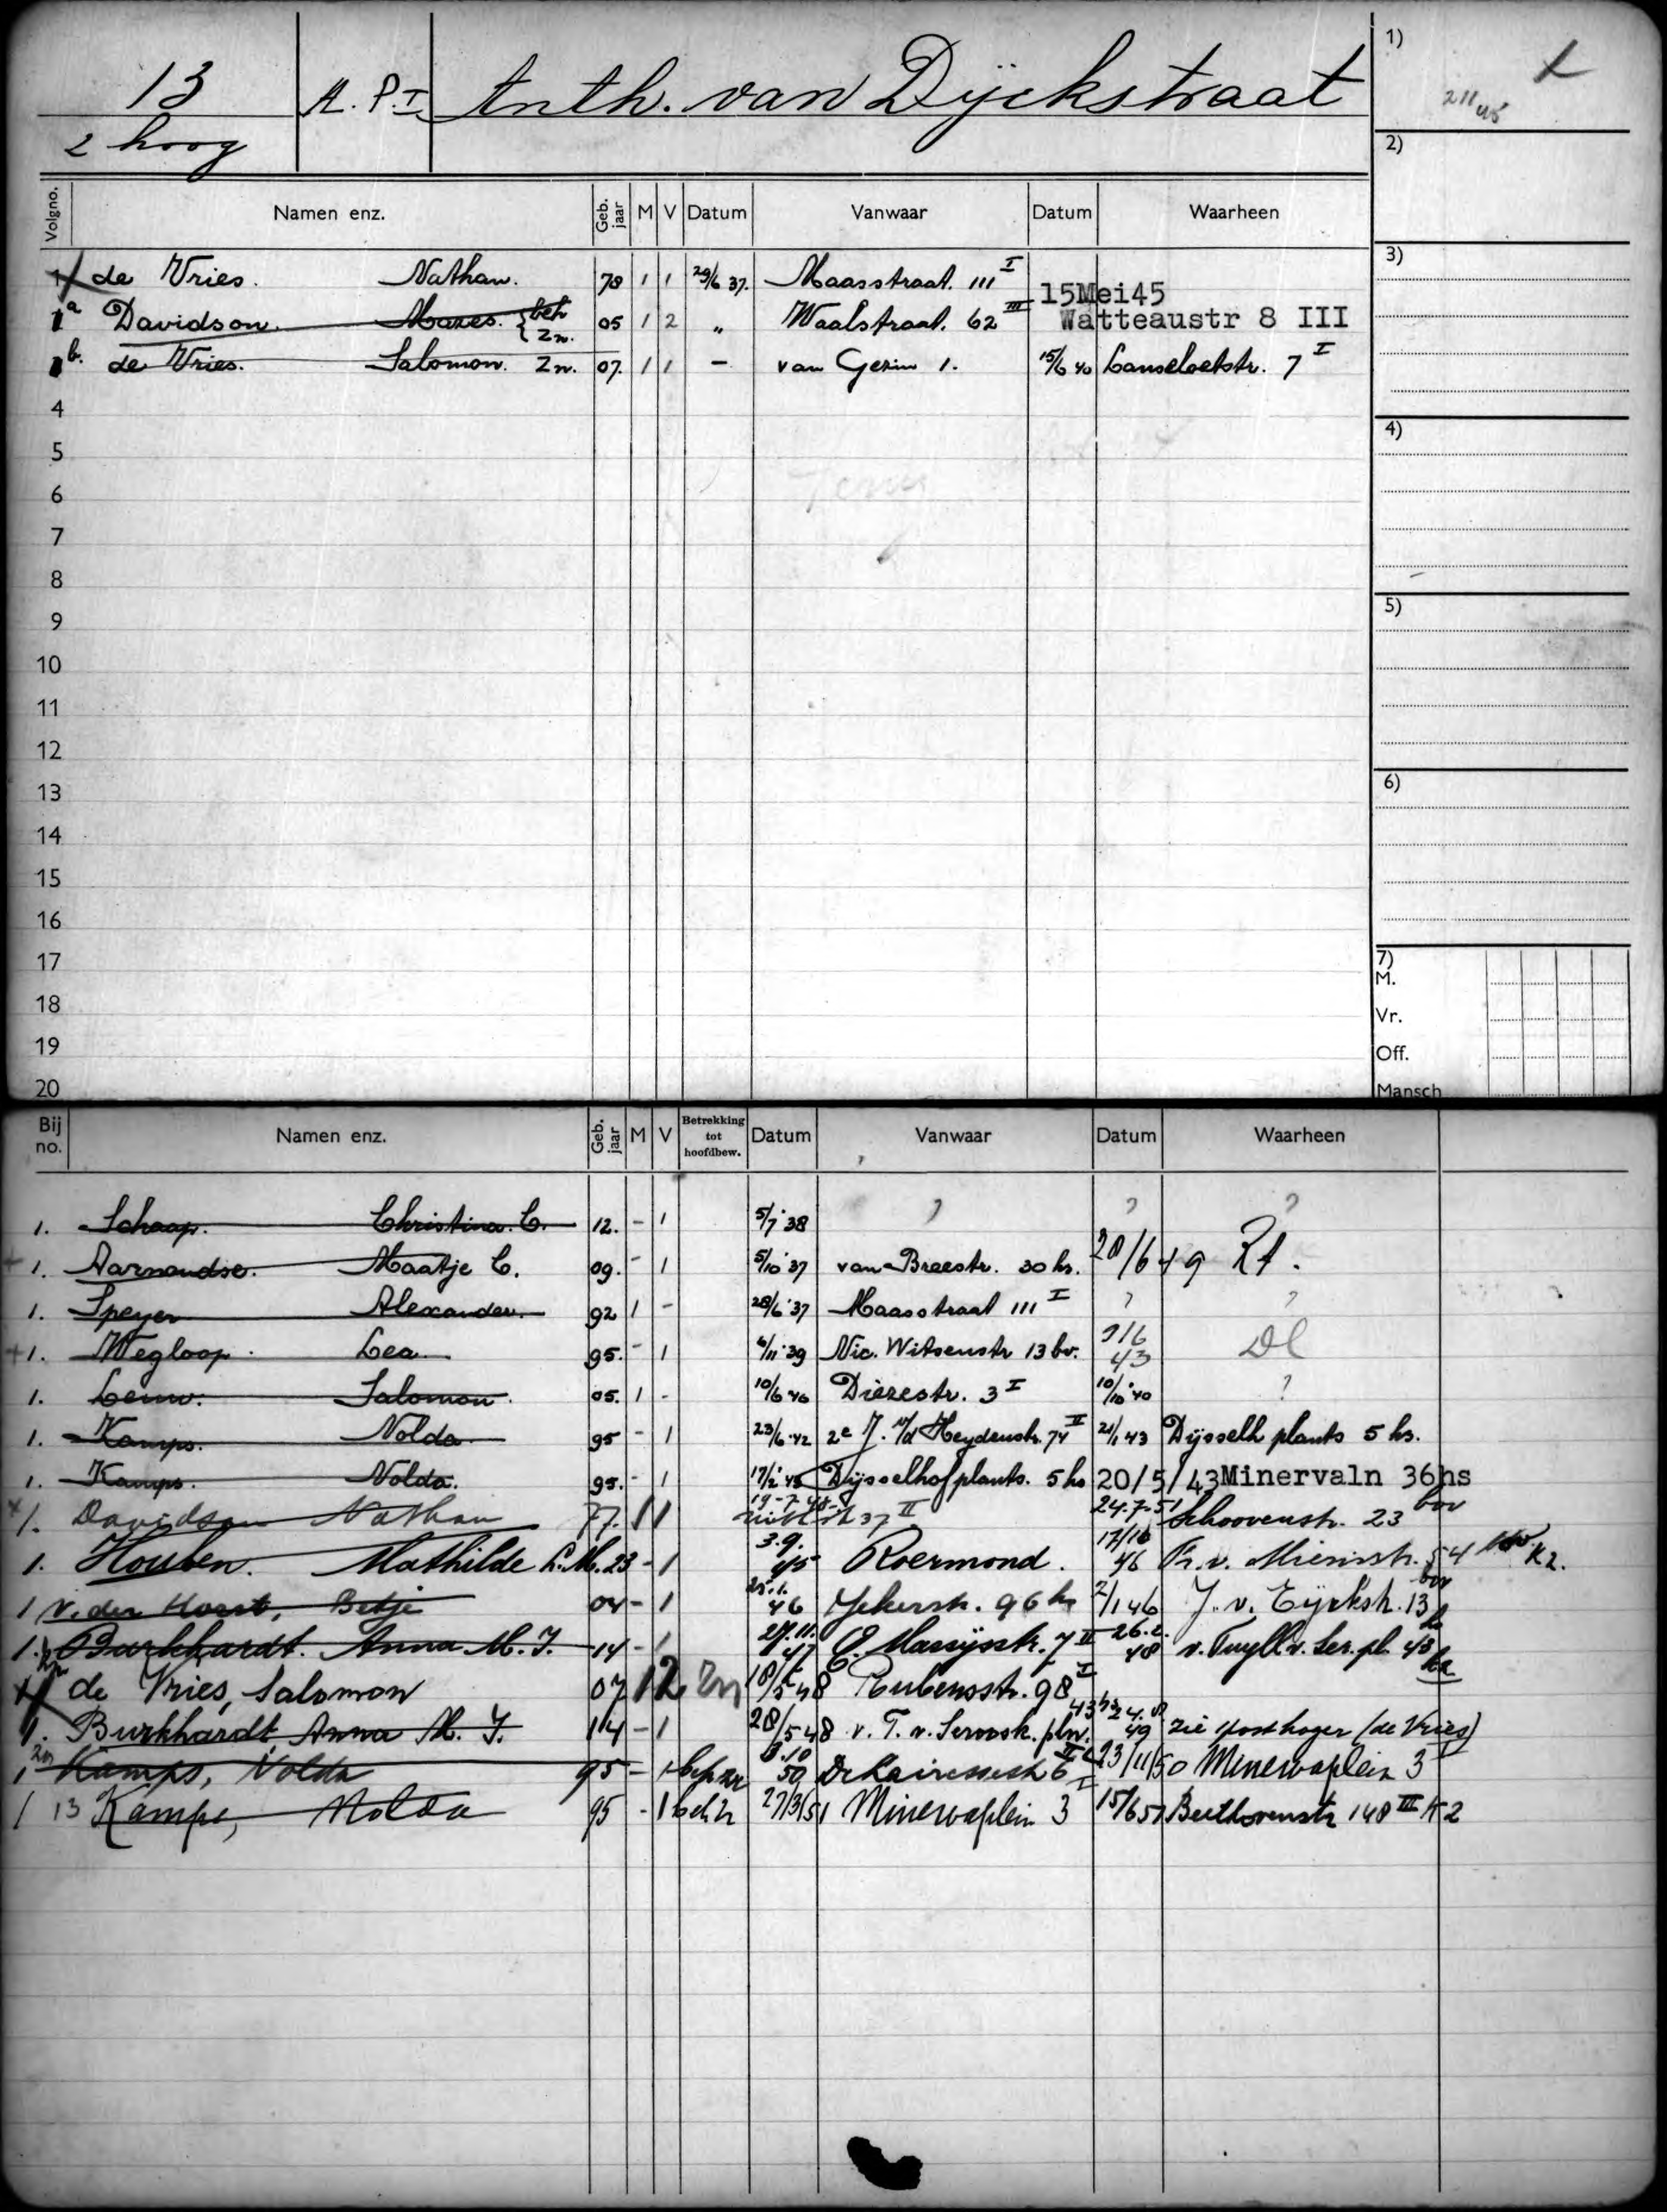 13 A. P. I Anth. van Dijckstraat
2 hoog
1)
2)
Volgno. Namen enz. Geb. jaar M V Datum Vanwaar Datum Waarheen
3)
1 de Vries. Nathan. 78 1 1 29/6 37. Maasstraat. 111 I
1a Davidson. Mozes. beh Zn. 05 1 2 „ Waalstraat. 62 III 15Mei45 Watteaustr 8 III
1b. de Vries. Salomon. Zn. 07. 1 1 — van Gezin 1. 15/6 40 Lanseloetstr. 7 I
4
4)
5
6
7
8
5)
9
10
11
12
6)
13
14
15
16
17
7)
M.
18
Vr.
19
Off.
20
Mansch
Bij no. Namen enz. Geb. jaar M V Betrekking tot hoofdbew. Datum Vanwaar Datum Waarheen
1. Schaap. Christina. C. 12. - 1 5/7 '38 ? ? ?
1. Aarnoudse. Maatje C. 09. - 1 5/10 '37 van Breestr. 30 hs. 20/6 49 Rt.
1. Speyer Alexander. 92 1 - 28/6 '37 Maasstraat 111 I ? ?
1. Wegloop. Lea. 95. - 1 6/11 '39 Nic. Witsenstr 13 bv. 9/6 43 Dl
1. Leuw. Salomon. 05. 1 - 10/6 '40 Diezestr. 3 I 10/10 '40 ?
1. Kamps. Nolda. 95 - 1 23/6 '42 2e J. v/d Heydenstr. 74 II 21/1 43 Dijsselh plants 5 hs.
1. Kamps. Nolda. 95. - 1 17/2 '43 Dijsselhofplants. 5 hs 20/5/43 Minervaln 36hs
1. Davidson Nathan 77. 1 1 19-7-48 37 II 24.7.51 Schoovenstr. 23 bov
1. Houben. Mathilde L. M. 23 - 1 3.9. 45 Roermond. 17/10 46 Fr. v. Mierisstr. 54 K2.
1 v. der Horst, Betje 04 - 1 25.1. 46 Jekerstr. 96 hs 2/1 46 J. v. Eyckstr. 13 bov
1. Burkhardt. Anna M. J. 14 - 1 27.11. 47 Q. Massijsstr. 7 II 26.2. 48 v. Tuyll v. Ser. pl. 43 hs
de Vries, Salomon 07 1 2 Zn 18/5 48 Rubensstr. 98 I
1. Burkhardt Anna M. J. 14 - 1 28/5 48 v. T. v. Seroosk. pln. 43 hs 24.8. 49 zie 1 post hoger (de Vries)
1 Kamps, Nolda 95 - 1 3.10 50 De Lairessestr 6 23/11/50 Minervaplein 3 I
1 13 Kamps, Nolda 95 - 1 27/3/51 Minervaplein 3 I 15/6 51 Beethovenstr 148 III K2